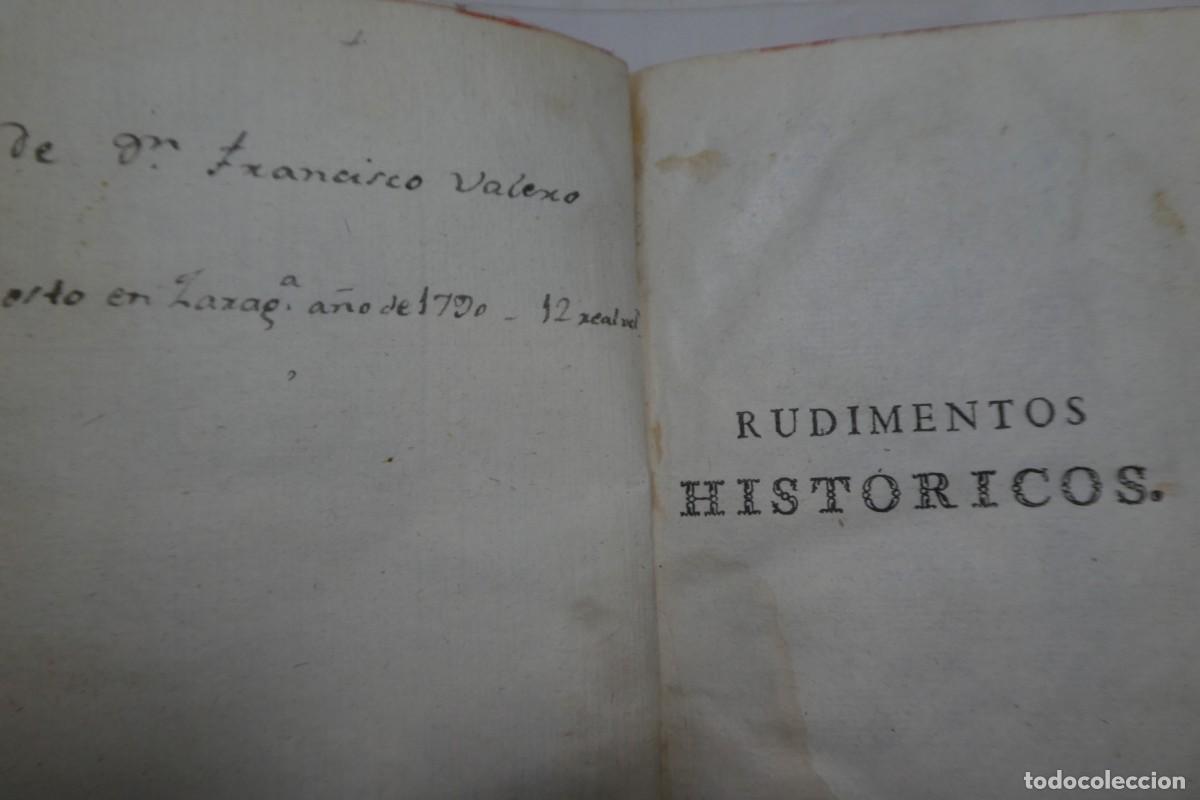 de Dⁿ. Francisco Valero
osto en Zaragᵃ. año de 1790 - 12 real vel
RUDIMENTOS
HISTÓRICOS.
todocoleccion